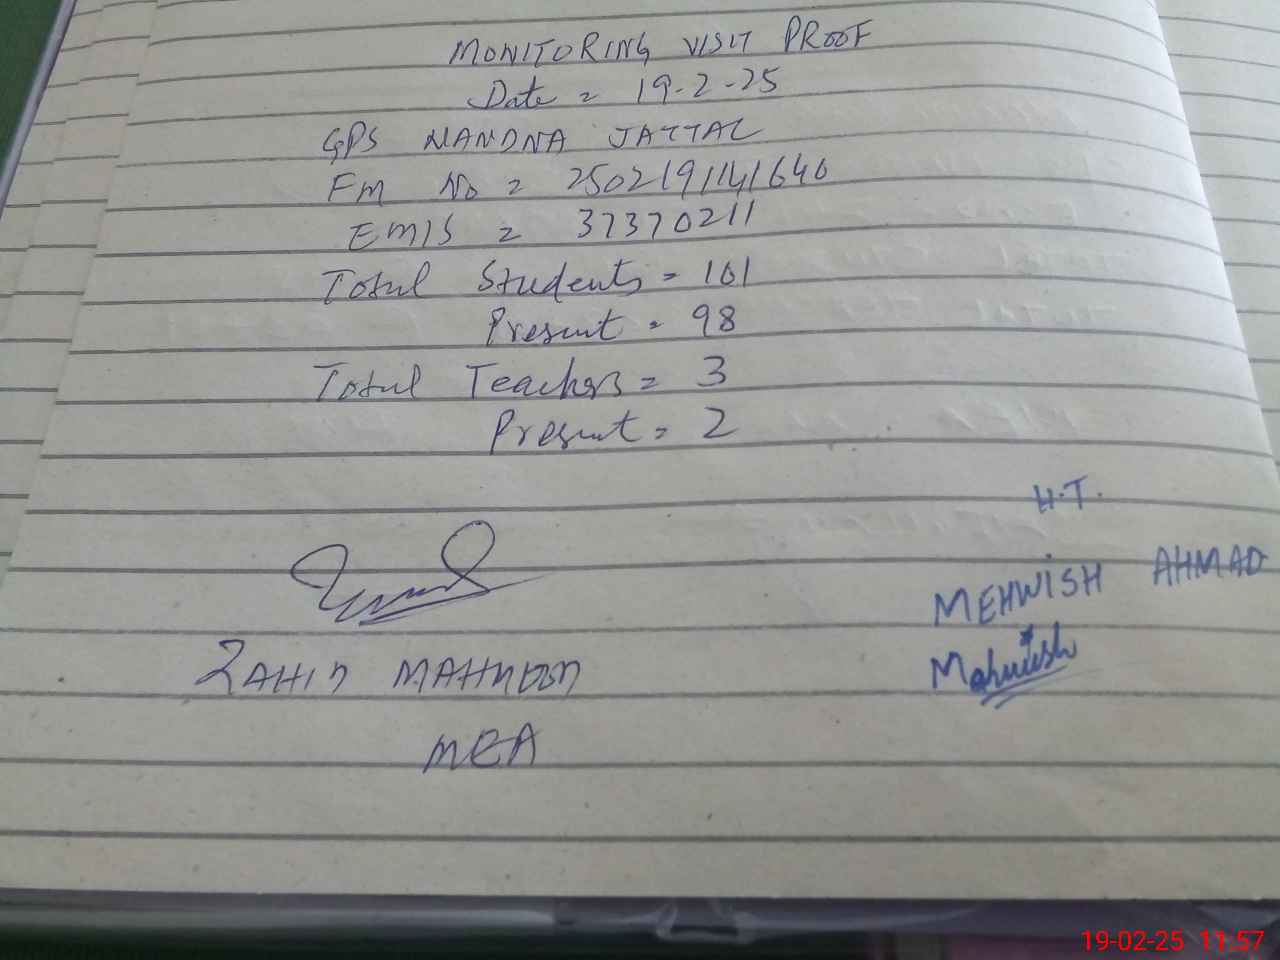 MONITORING VISIT PROOF
Date = 19-2-25
GPS NANDNA JATTAL
Fm No = 2502191141646
EMIS = 37370211
Total Students = 101
Present = 98
Total Teachers = 3
Present = 2
H.T.
MEHWISH AHMAD
Mehwish
ZAHID MAHMOOD
MEA
19-02-25 11:57